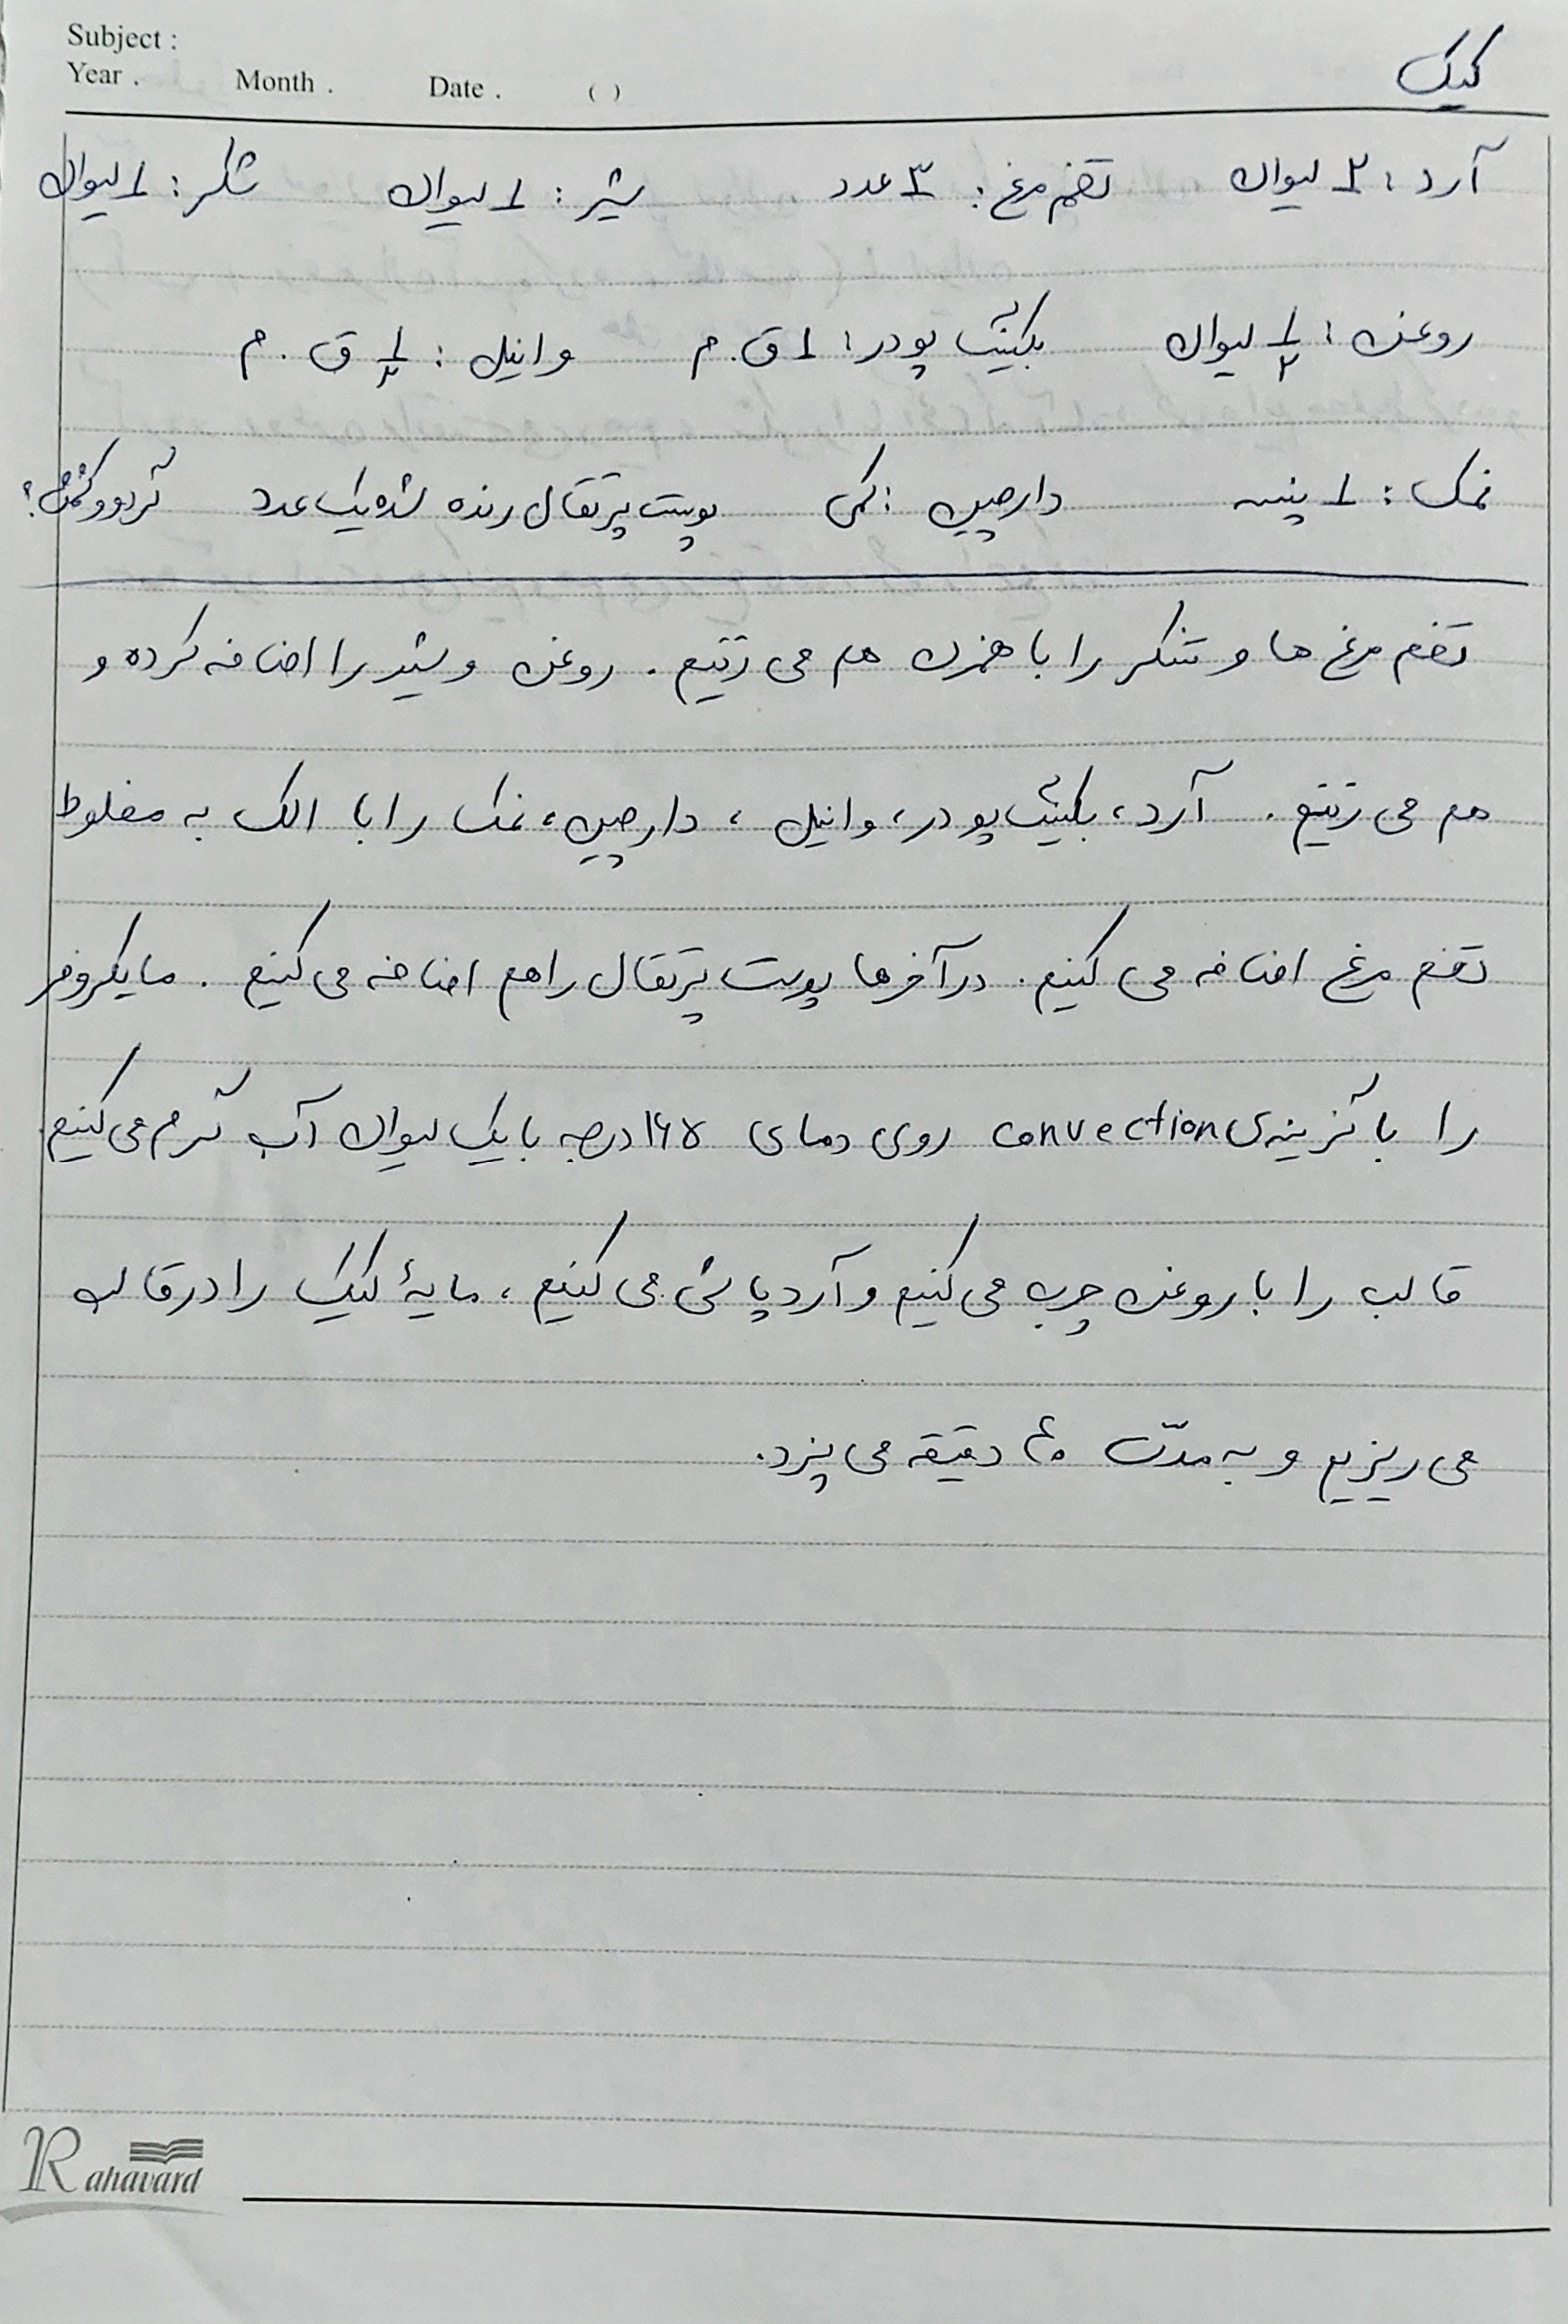 Subject :
Year . Month . Date . ( )
کیک
آرد : ۲ لیوان تخم مرغ : ۳ عدد شیر : ۱ لیوان شکر : ۱ لیوان
روغن : ۱/۲ لیوان بکینگ پودر : ۱ ق.م وانیل : ۱/۲ ق.م
نمک : ۱ پنسه دارچین : کمی پوست پرتقال رنده شده یک عدد گردو و کشمش؟
تخم مرغ ها و شکر را با همزن هم می زنیم . روغن و شیر را اضافه کرده و
هم می زنیم . آرد ، بکینگ پودر ، وانیل ، دارچین ، نمک را با الک به مخلوط
تخم مرغ اضافه می کنیم . در آخر ها پوست پرتقال را هم اضافه می کنیم . مایکروفر
را با گزینه‌ی convection روی دمای ۱۶۵ درجه با یک لیوان آب گرم می کنیم .
قالب را با روغن چرب می کنیم و آرد پاشی می کنیم ، مایۀ کیک را در قالب
می ریزیم و به مدّت ۴۰ دقیقه می پزد .
Rahavard